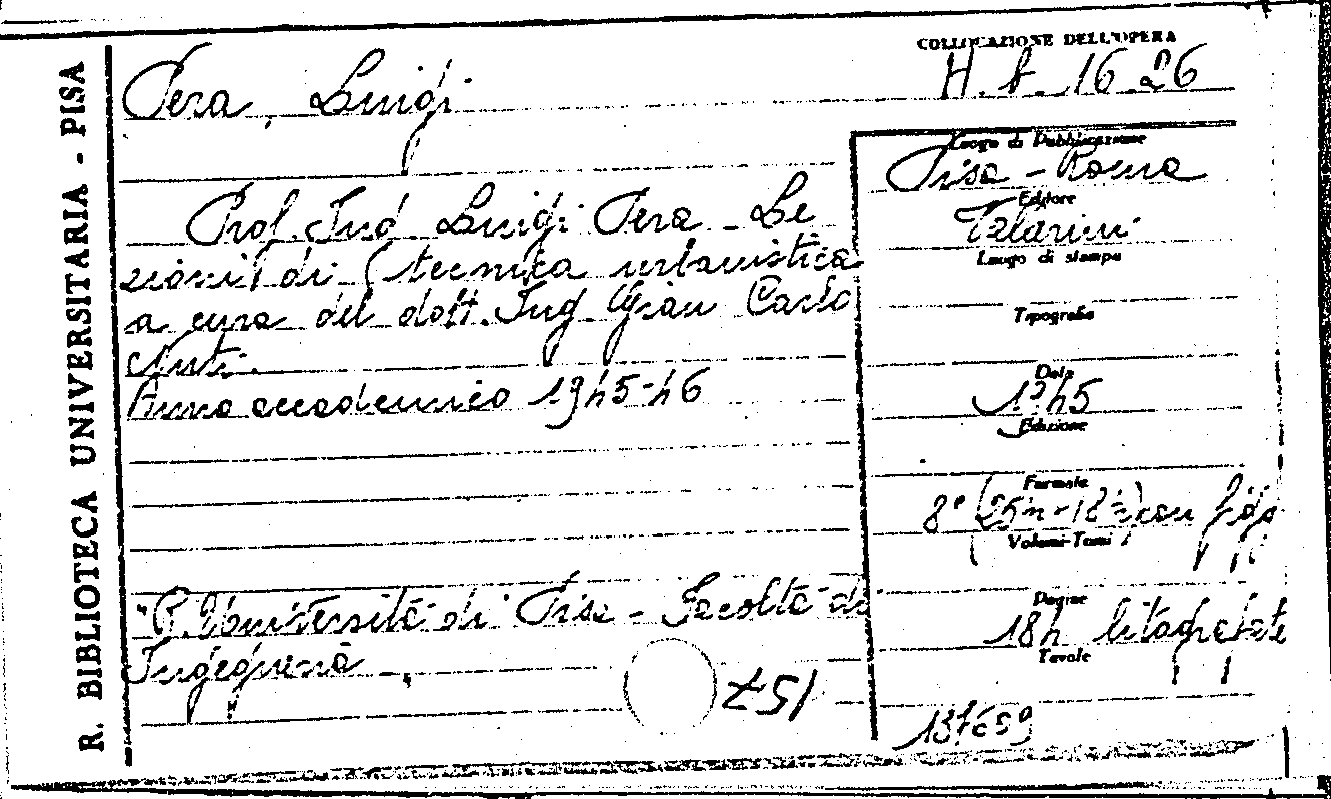 R. BIBLIOTECA UNIVERSITARIA - PISA
COLLOCAZIONE DELL'OPERA
H. f. 16 26
Pera, Luigi
Prof. Ing Luigi Pera - Le
zioni di tecnica urbanistica
a cura del dott. Ing Gian Carlo
Nuti.
Anno accademico 1945-46
"R. Università di Pisa - Facoltà di
Ingegneria"
157
Luogo di Pubblicazione
Pisa - Roma
Editore
Vallerini
Luogo di stampa
Tipografia
Data
1945
Edizione
Formato
8° (25½-18½) con figg
Volumi-Tomi
Pagine
184 litografate
Tavole
137659